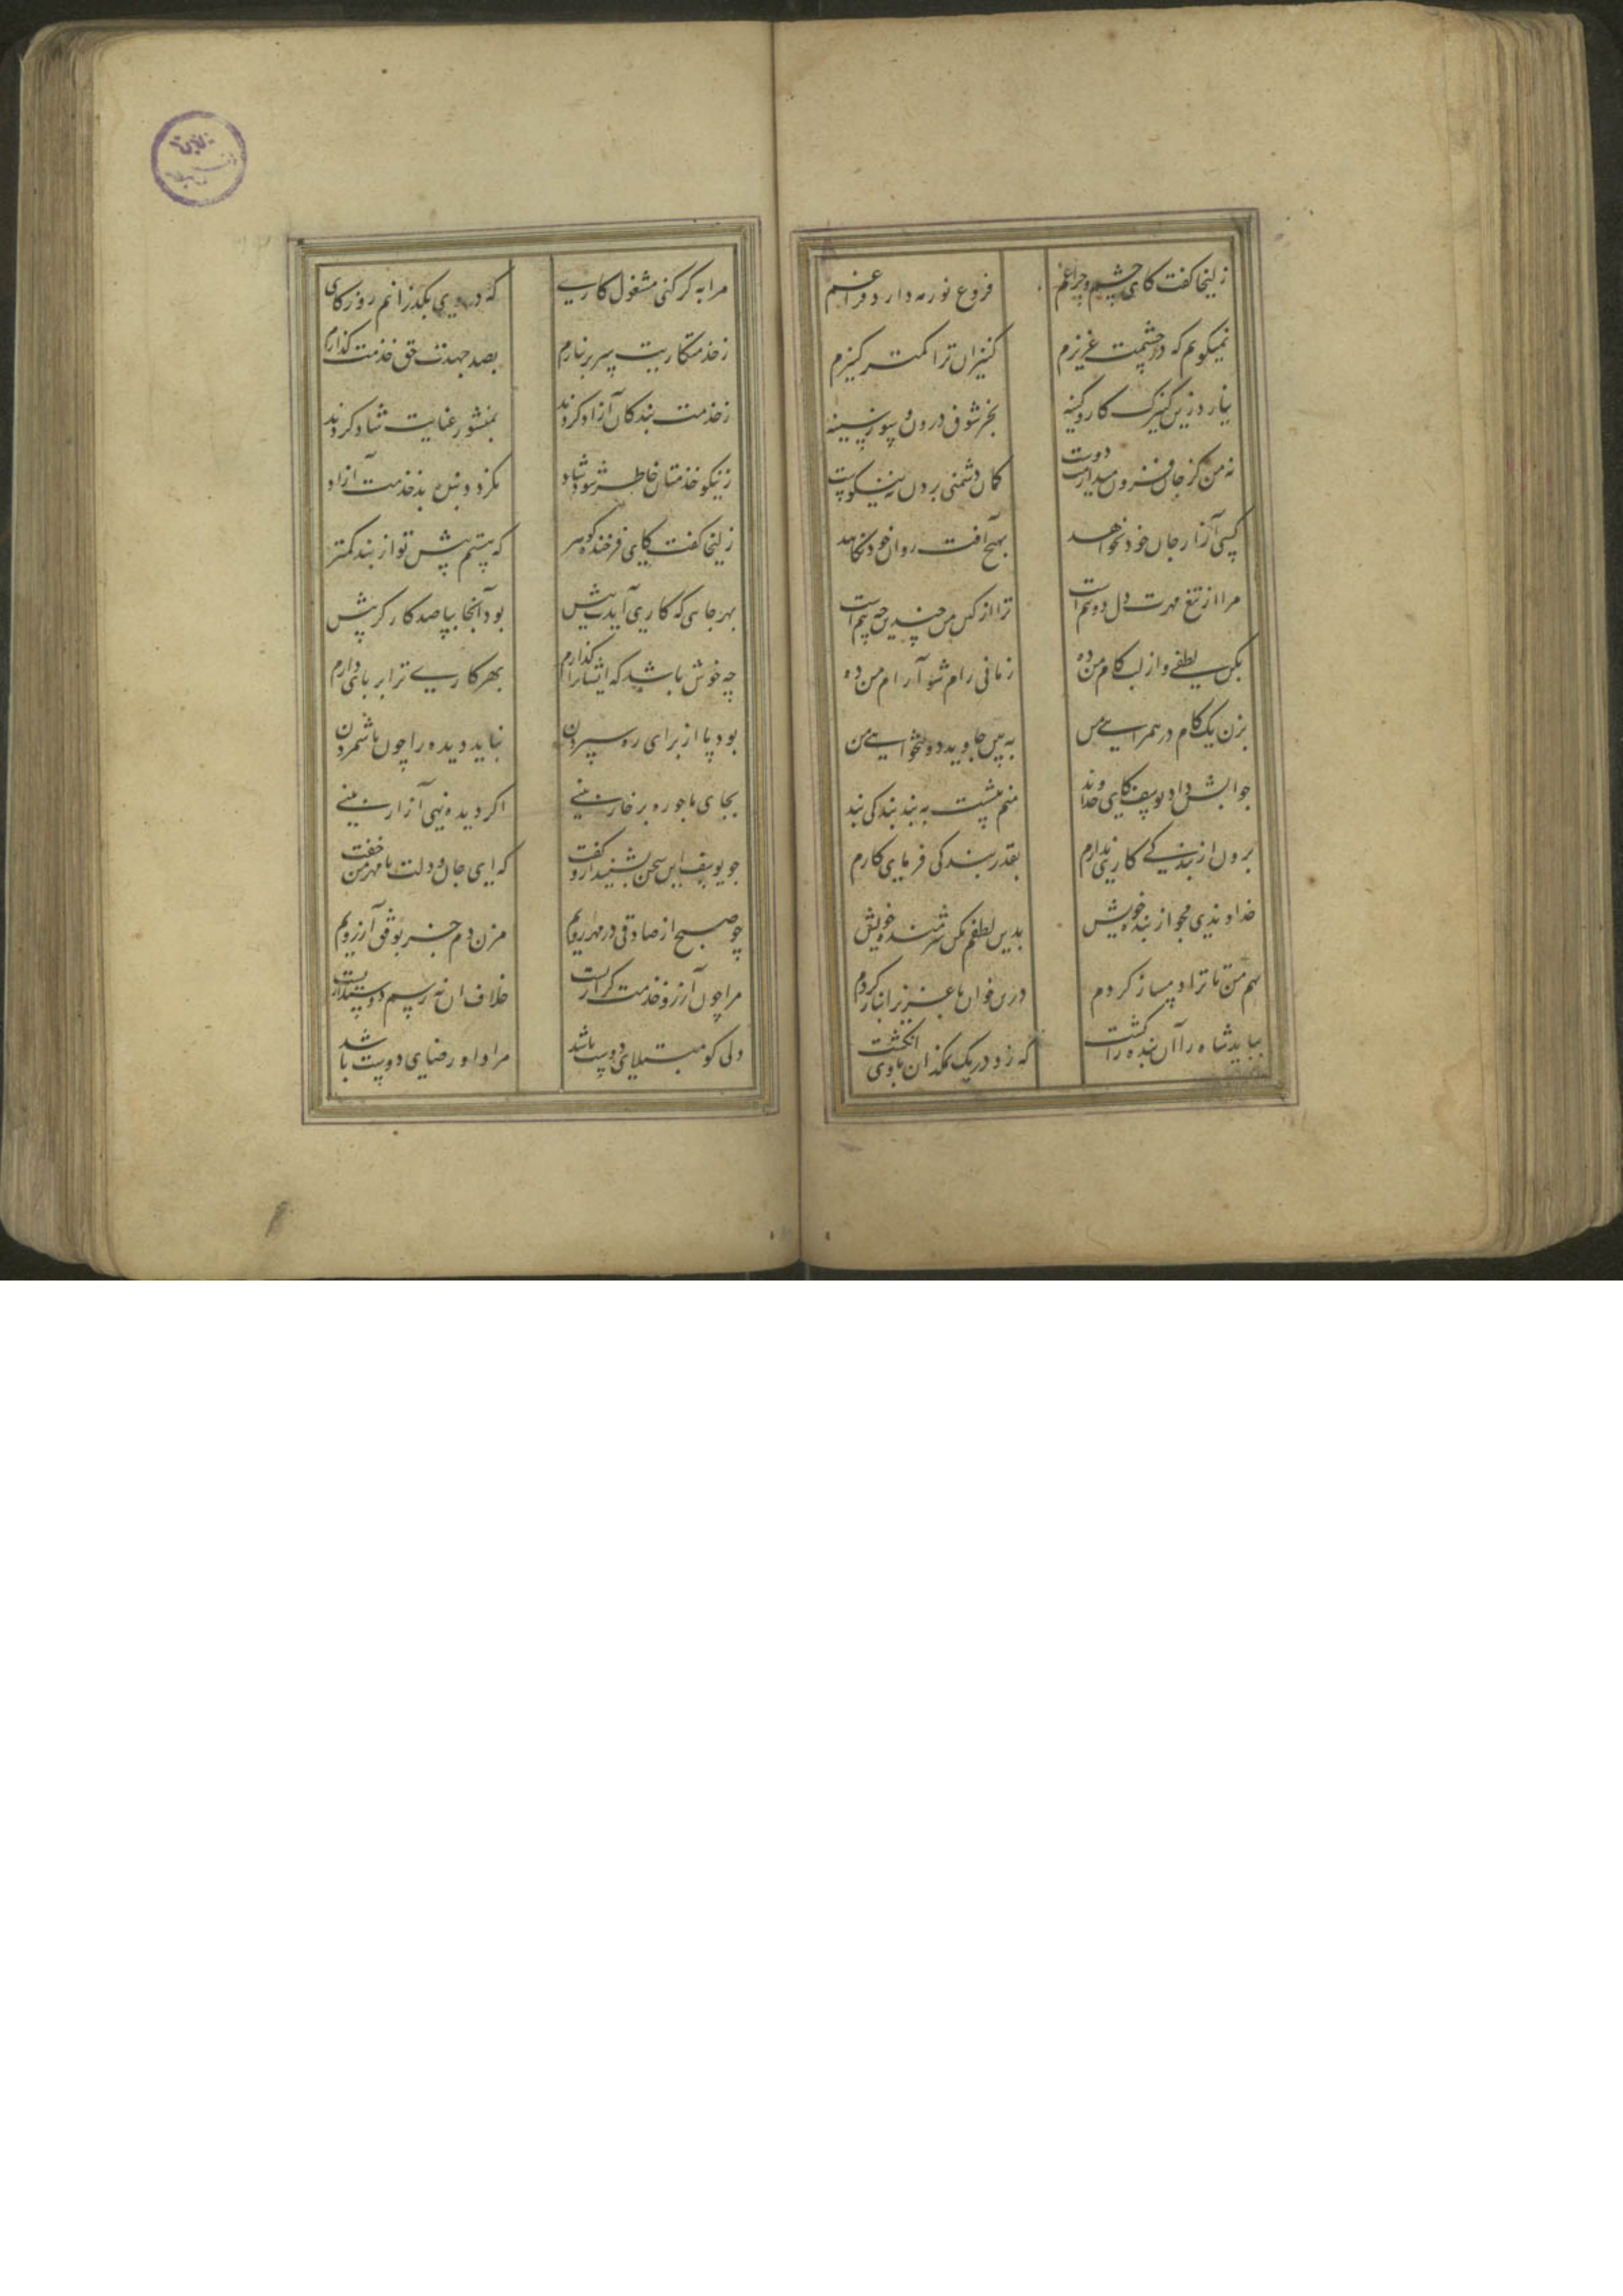 زلیخا گفت کای چشم و چراغم
فروغ نور مه دارد فراغم
نمیگویم که در چشمت عزیزم
کنیزان ترا کمتر کنیزم
نیارد زین کنیزک کار و کینه
بجز شوق درون و سوز سینه
نه من کز جان فزون میدارمت دوست
گمان دشمنی بردن نه نیکوست
کسی آزار جان خود نخواهد
بهیچ آفت روان خود نکاهد
مرا از تیغ مهرت دل دو نیم است
ترا از کین من چندین چه بیم است
بکن لطفی و از لب کام من ده
زمانی رام شو آرام من ده
بزن یک کام در همراهی من
ببین جاوید دولتخواهی من
جوابش داد یوسف کای خداوند
منم پیشت به بند بندگی بند
برون از بندگی کاری ندارم
بقدر بندگی فرمای کارم
خداوندی مجو از بنده خویش
بدین لطفم مکن شرمنده خویش
کیم من تا ترا دمساز کردم
درین خوان با عزیز انباز کردم
بباید شاه را آن بنده را کشت
که زد در یک نمکدان با وی انگشت
مرا به گر کنی مشغول کاری
که در وی بگذرانم روزگاری
ز خدمتکاریت سر بر نیارم
بصد جهدت حق خدمت گذارم
ز خدمت بندگان آزاد کردند
بمنشور عنایت شاد کردند
ز نیکو خدمتان خاطر شود شاد
نگردد بنده بد خدمت آزاد
زلیخا گفت کای فرخنده گوهر
که هستم پیش تو از بنده کمتر
بهر جایی که کاری آیدت پیش
بود آنجا بپا صد کارگر پیش
چه خوش باشد که ایشانرا گذارم
بهر کاری ترا بر پای دارم
بود پا از برای ره سپردن
نباید دیده را چون پا شمردن
بجای پا چو ره بر خار بینی
اگر دیده نهی آزار بینی
چو یوسف این سخن بشنید ازو گفت
که ای جان و دلت با مهر من جفت
چو صبح از صادقی در مهر رویم
مزن دم جز بوفق آرزویم
مرا چون آرزو خدمت گزاریست
خلاف آن نه رسم دوستداریست
دلی کو مبتلای دوست باشد
مراد او رضای دوست باشد